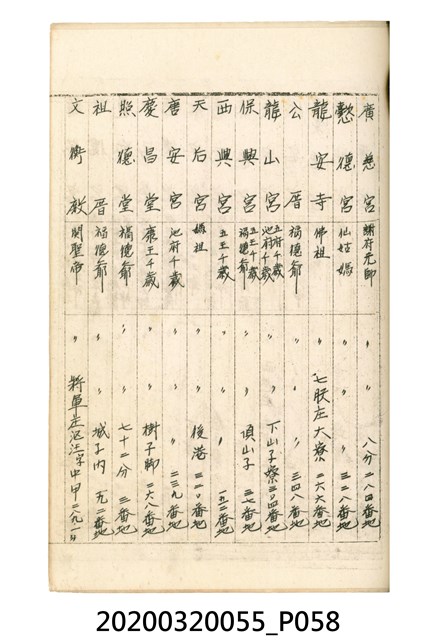 廣慈宮 謝府元帥 〃 〃 八分 二八四番地
懃德宮 仙姑媽 〃 〃 〃 三二八番地
龍安寺 佛祖 〃 七股庄大寮 二六六番地
公厝 福德爺 〃 〃 〃 三四八番地
龍山宮 五府千歲 池府千歲 〃 〃 下山子寮 三〇四番地
保興宮 五王千歲 福德爺 〃 〃 頂山子 三七番地
西興宮 五王千歲 〃 〃 〃 一五二番地
天后宮 媽祖 〃 〃 後港 三二〇番地
唐安宮 池府千歲 〃 〃 〃 二三九番地
慶昌堂 康王千歲 〃 〃 樹子脚 二六八番地
照德堂 福德爺 〃 〃 七十二分 三番地
祖厝 福德爺 〃 〃 城子內 九二番地
文衡殿 關聖帝 〃 將軍庄沤汪字中甲 二九一番地
20200320055_P058